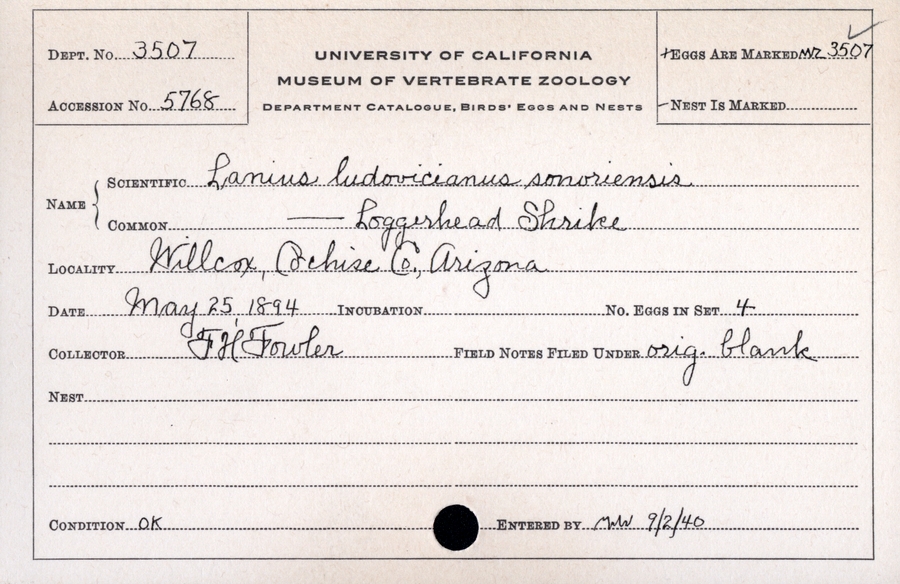 DEPT. NO. 3507
ACCESSION NO. 5768
UNIVERSITY OF CALIFORNIA
MUSEUM OF VERTEBRATE ZOOLOGY
DEPARTMENT CATALOGUE, BIRDS' EGGS AND NESTS
+EGGS ARE MARKED MVZ 3507
-NEST IS MARKED
NAME
SCIENTIFIC Lanius ludovicianus sonoriensis
COMMON —— Loggerhead Shrike
LOCALITY Willcox, Cochise Co., Arizona
DATE May 25, 1894 INCUBATION NO. EGGS IN SET 4
COLLECTOR F H Fowler FIELD NOTES FILED UNDER orig. blank
NEST
CONDITION OK ENTERED BY 9/2/40